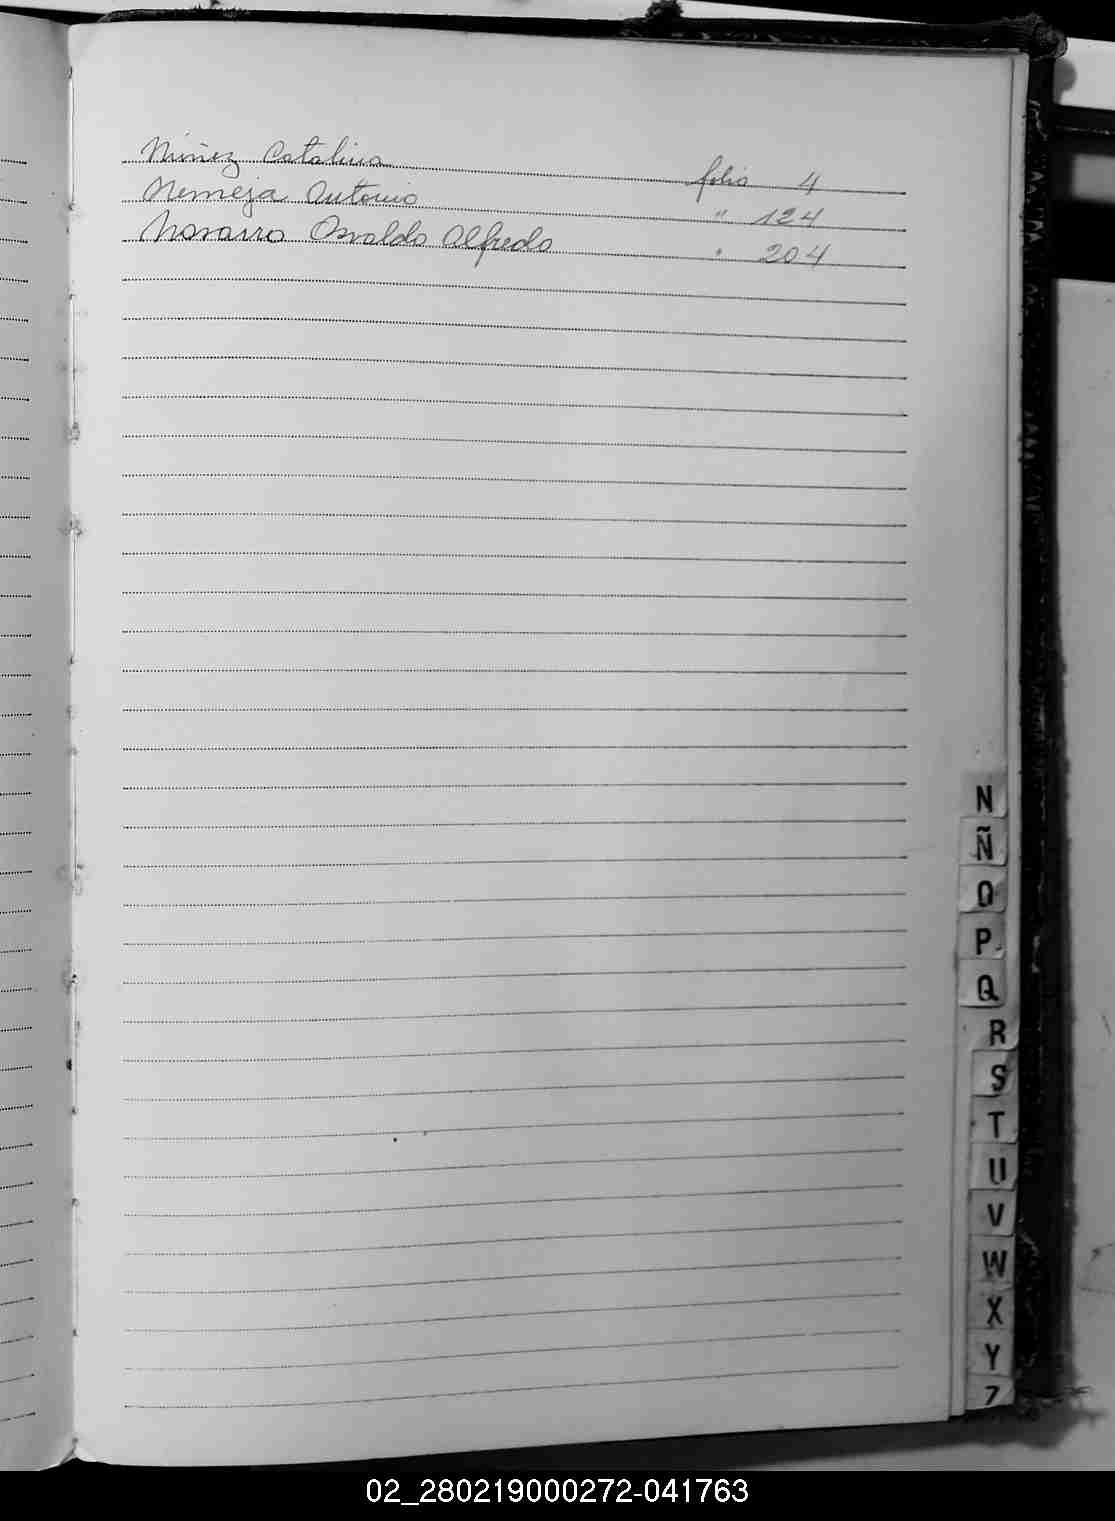 Núñez Catalina folio 4
Nemeja Antonio " 124
Navarro Osvaldo Alfredo " 204
N
Ñ
O
P
Q
R
S
T
U
V
W
X
Y
Z
02_280219000272-041763